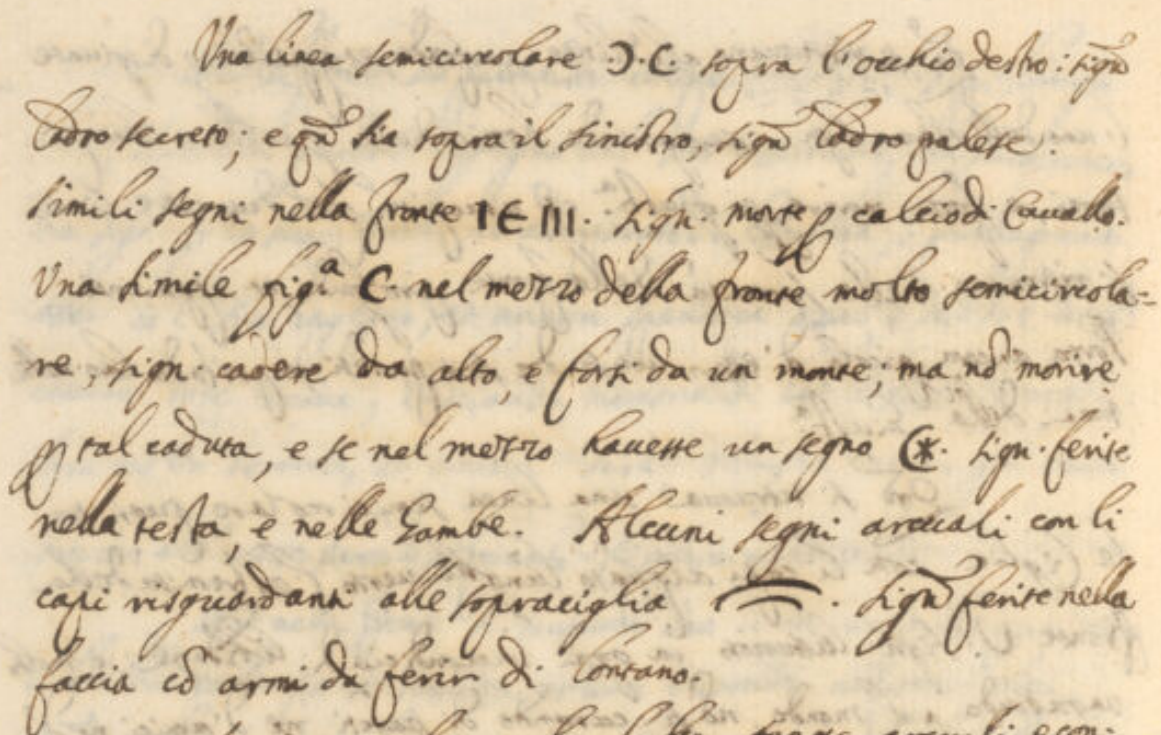 Una linea semicircolare .Ɔ.C. sopra l'occhio destro: signō
ladro secreto; e qñ sia sopra il sinistro, signō ladro palese.
simili segni nella fronte I Є III. sign. morte ꝑ calcio di Cavallo.
Una simile figᵃ C. nel mezzo della fronte molto semicircola=
re, sign. cadere da alto, e forsi da un monte; ma nō morire
ꝑ tal caduta, e se nel mezzo havesse un segno (*. sign. ferite
nella testa, e nelle Gambe. Alcuni segni arcuali con li
capi risguardanti alle sopraciglia . signō ferite nella
faccia cō armi da ferir di lontano.